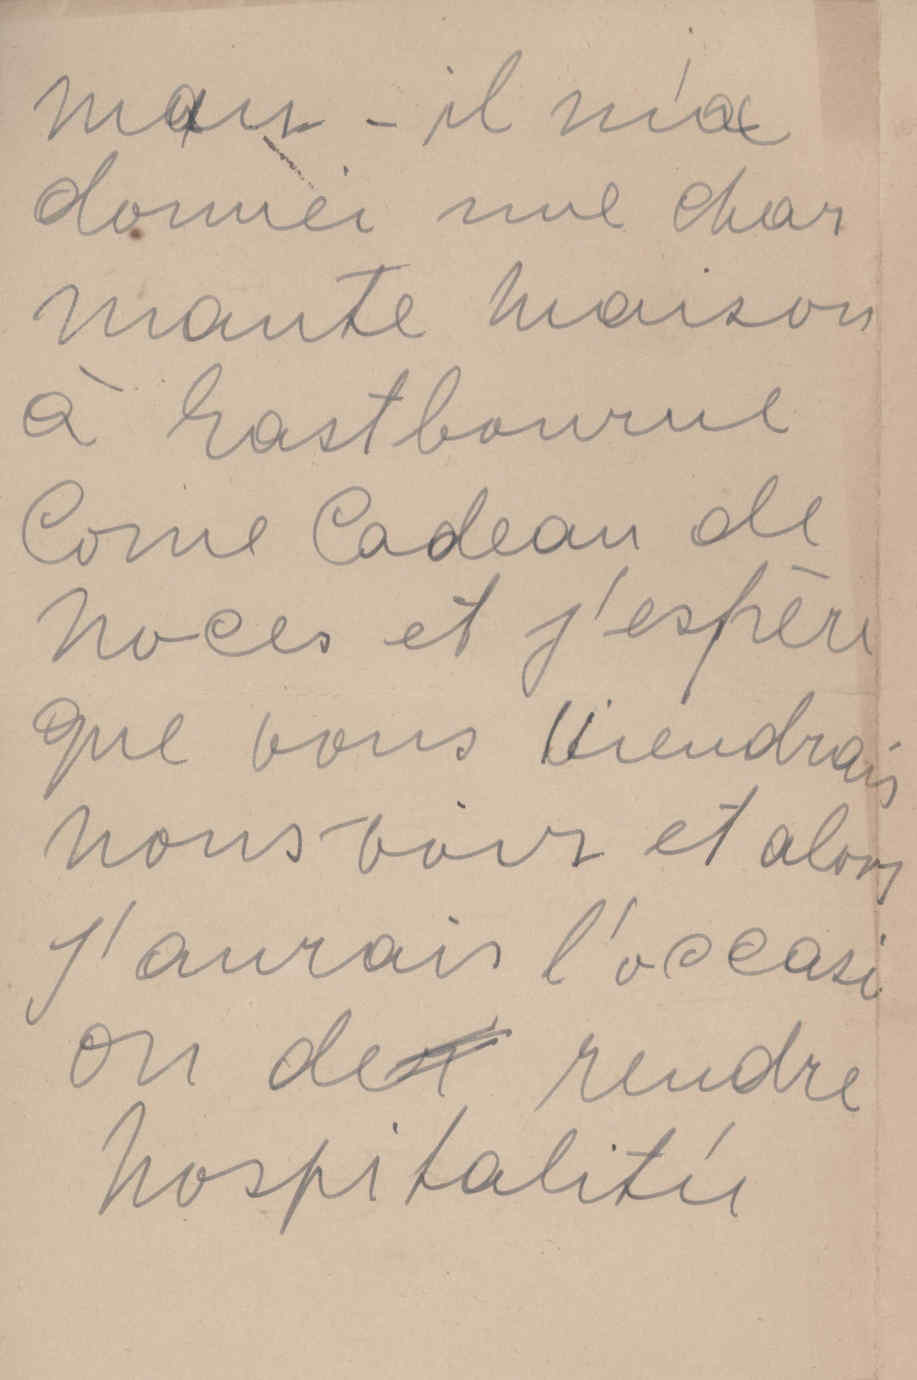 mari - il m'a
donnéi une char
mante maison
à Eastbourne
Come Cadeau de
noces et j'espère
que vous viendrais
nous voir et alors
j'aurais l'occasi
on de rendre
hospitalitée